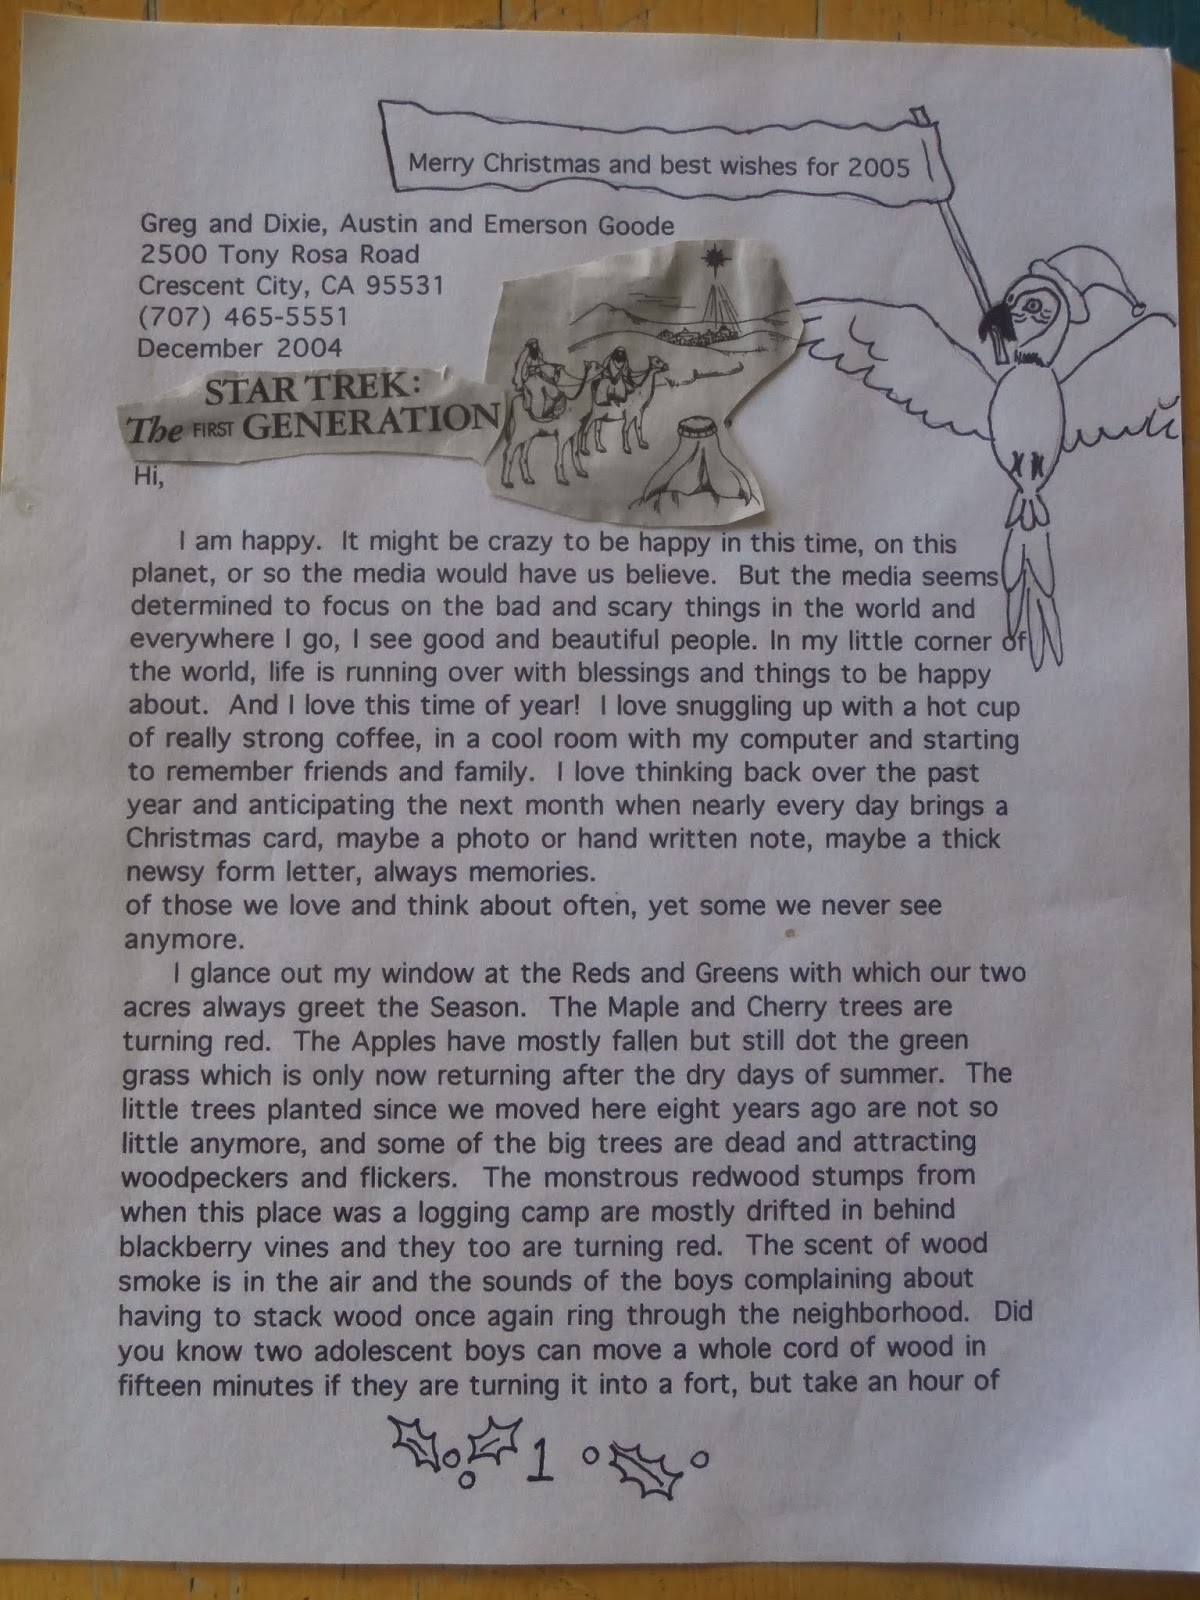 Merry Christmas and best wishes for 2005
Greg and Dixie, Austin and Emerson Goode
2500 Tony Rosa Road
Crescent City, CA 95531
(707) 465-5551
December 2004
STAR TREK:
The FIRST GENERATION
Hi,
I am happy. It might be crazy to be happy in this time, on this
planet, or so the media would have us believe. But the media seems
determined to focus on the bad and scary things in the world and
everywhere I go, I see good and beautiful people. In my little corner of
the world, life is running over with blessings and things to be happy
about. And I love this time of year! I love snuggling up with a hot cup
of really strong coffee, in a cool room with my computer and starting
to remember friends and family. I love thinking back over the past
year and anticipating the next month when nearly every day brings a
Christmas card, maybe a photo or hand written note, maybe a thick
newsy form letter, always memories.
of those we love and think about often, yet some we never see
anymore.
I glance out my window at the Reds and Greens with which our two
acres always greet the Season. The Maple and Cherry trees are
turning red. The Apples have mostly fallen but still dot the green
grass which is only now returning after the dry days of summer. The
little trees planted since we moved here eight years ago are not so
little anymore, and some of the big trees are dead and attracting
woodpeckers and flickers. The monstrous redwood stumps from
when this place was a logging camp are mostly drifted in behind
blackberry vines and they too are turning red. The scent of wood
smoke is in the air and the sounds of the boys complaining about
having to stack wood once again ring through the neighborhood. Did
you know two adolescent boys can move a whole cord of wood in
fifteen minutes if they are turning it into a fort, but take an hour of
1